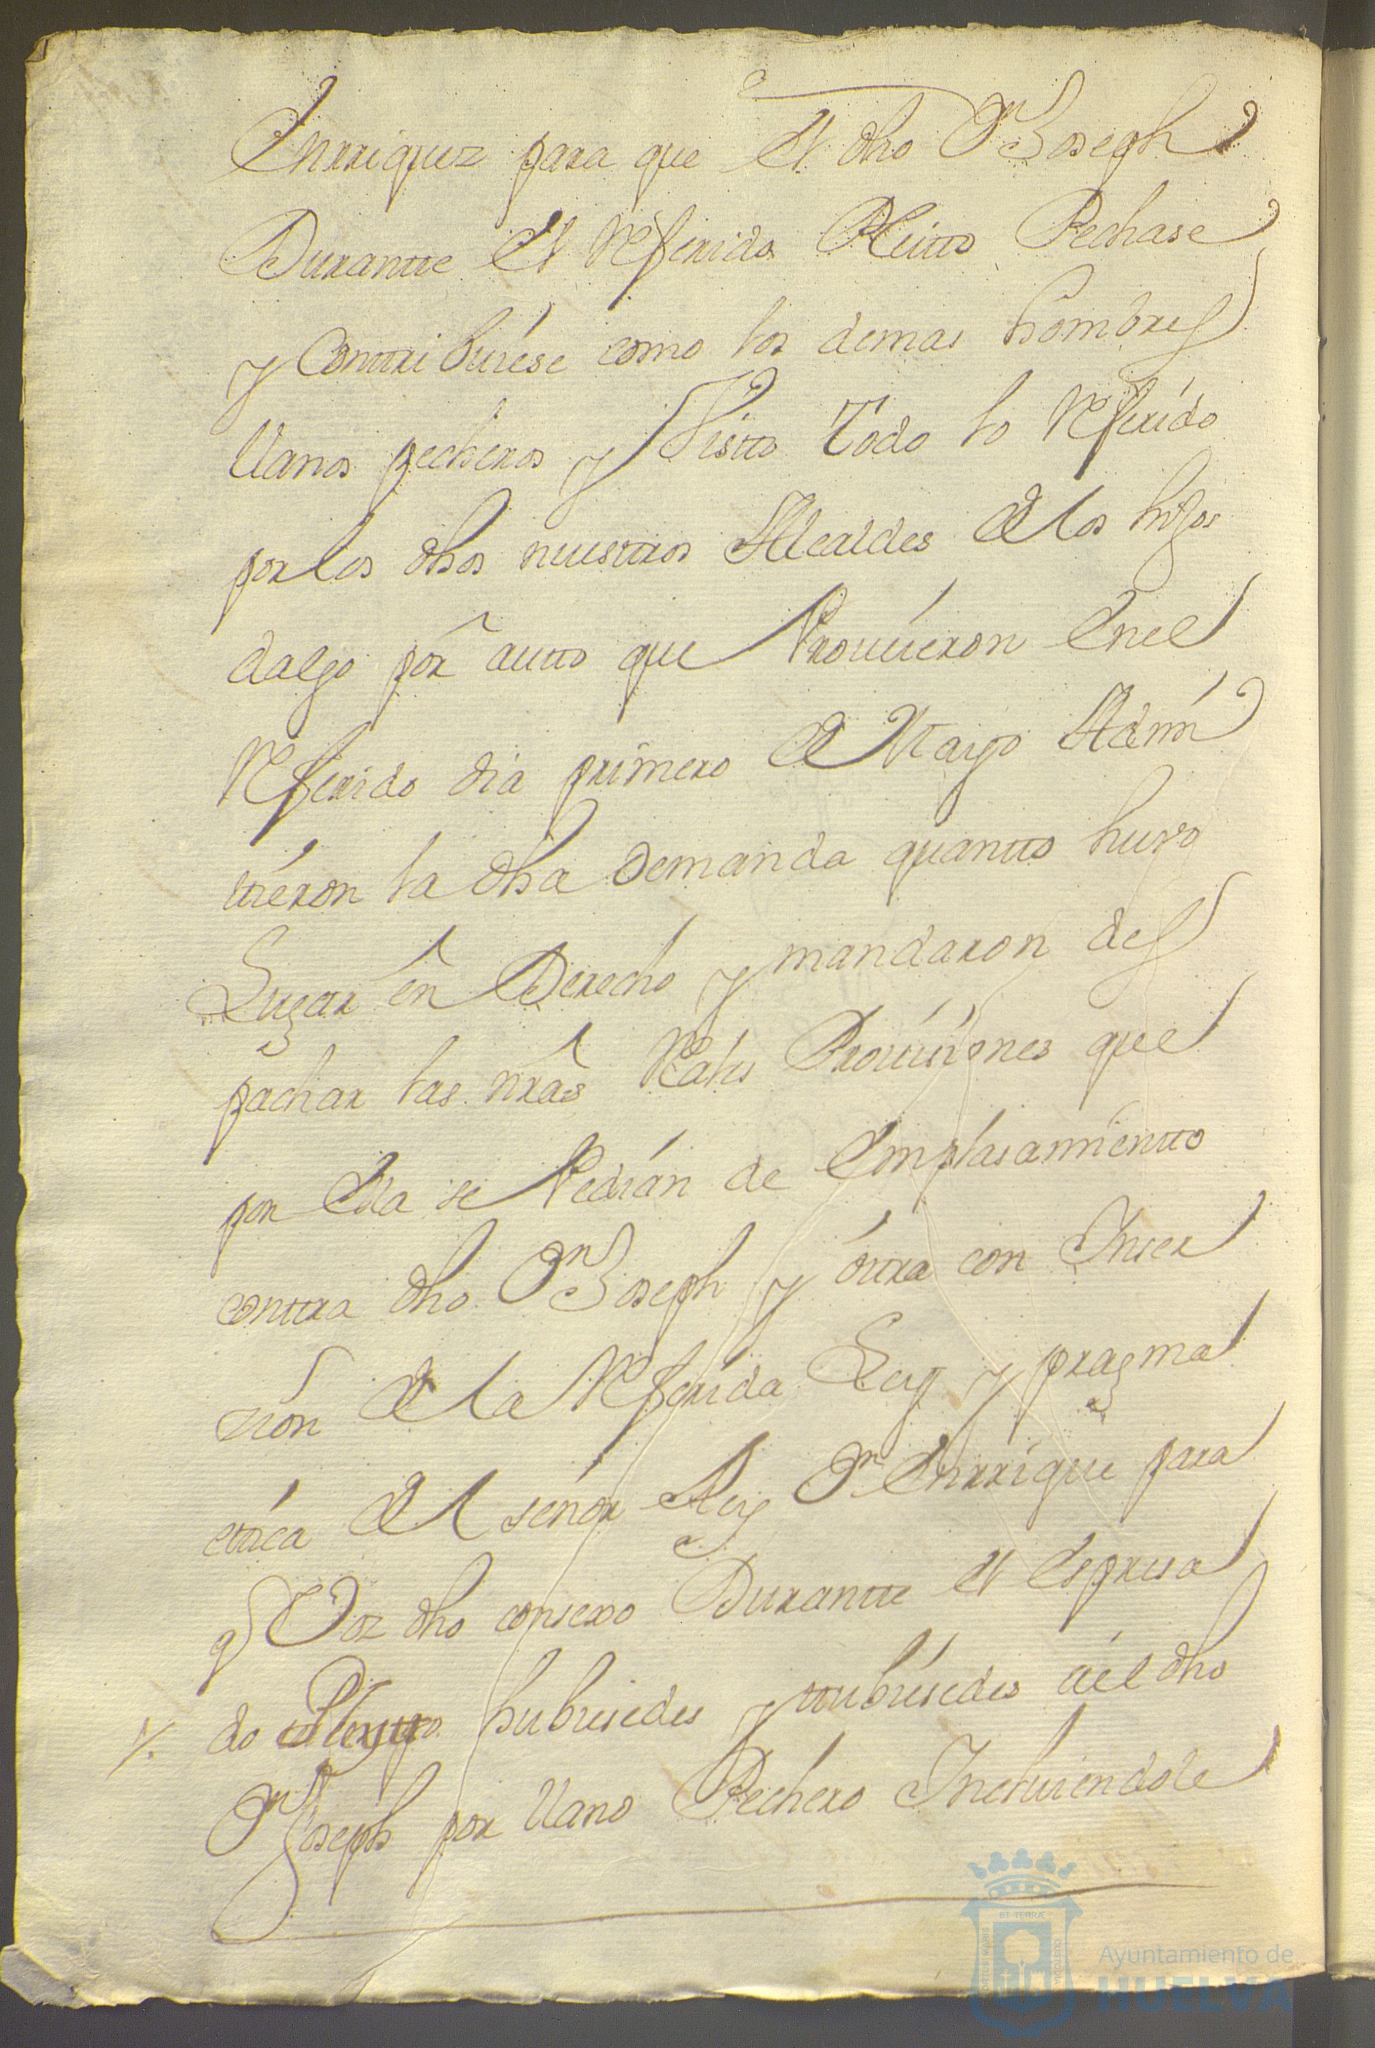 Enrriquez para que el dho Dn Joseph
Durantte el Referido Pleitto Pechase
y Conttribuiese como los demas hombres
llanos pecheros y Visto Todo lo Referido
por los dhos nuestros Alcaldes de los hijos
dalgo por autto que Prouieron En el
Referido dia primero de Mayo Admi
ttieron la dha Demanda quantto huvo
Lugar en Derecho y mandaron des
pachar las nras Rales Prouiciones que
por Ella se Pedian de Emplasamientto
conttra dho Dn Joseph y ottra con Inser
zion de la Referida Ley y pragma
ttica del señor Rey Dn Enrrique para
q Voz dho consexo Durantte el espresa
do Pleytto hubiesedes y ttubiesedes ael dho
Dn Joseph por llano Pechero Incluiendole
Ayuntamiento de
HUELVA